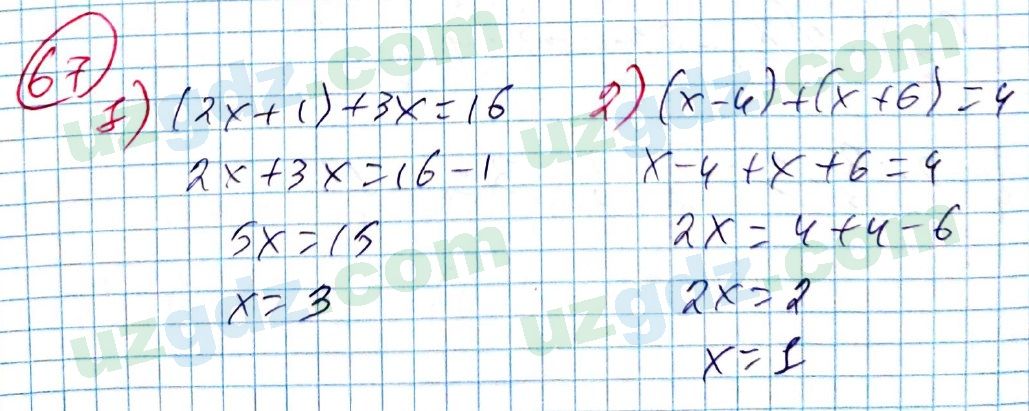 67
1) (2x+1)+3x=16
2x+3x=16-1
5x=15
x=3
2) (x-4)+(x+6)=4
x-4+x+6=4
2x=4+4-6
2x=2
x=1
uzgdz.com
uzgdz.com
uzgdz.com
uzgdz.com